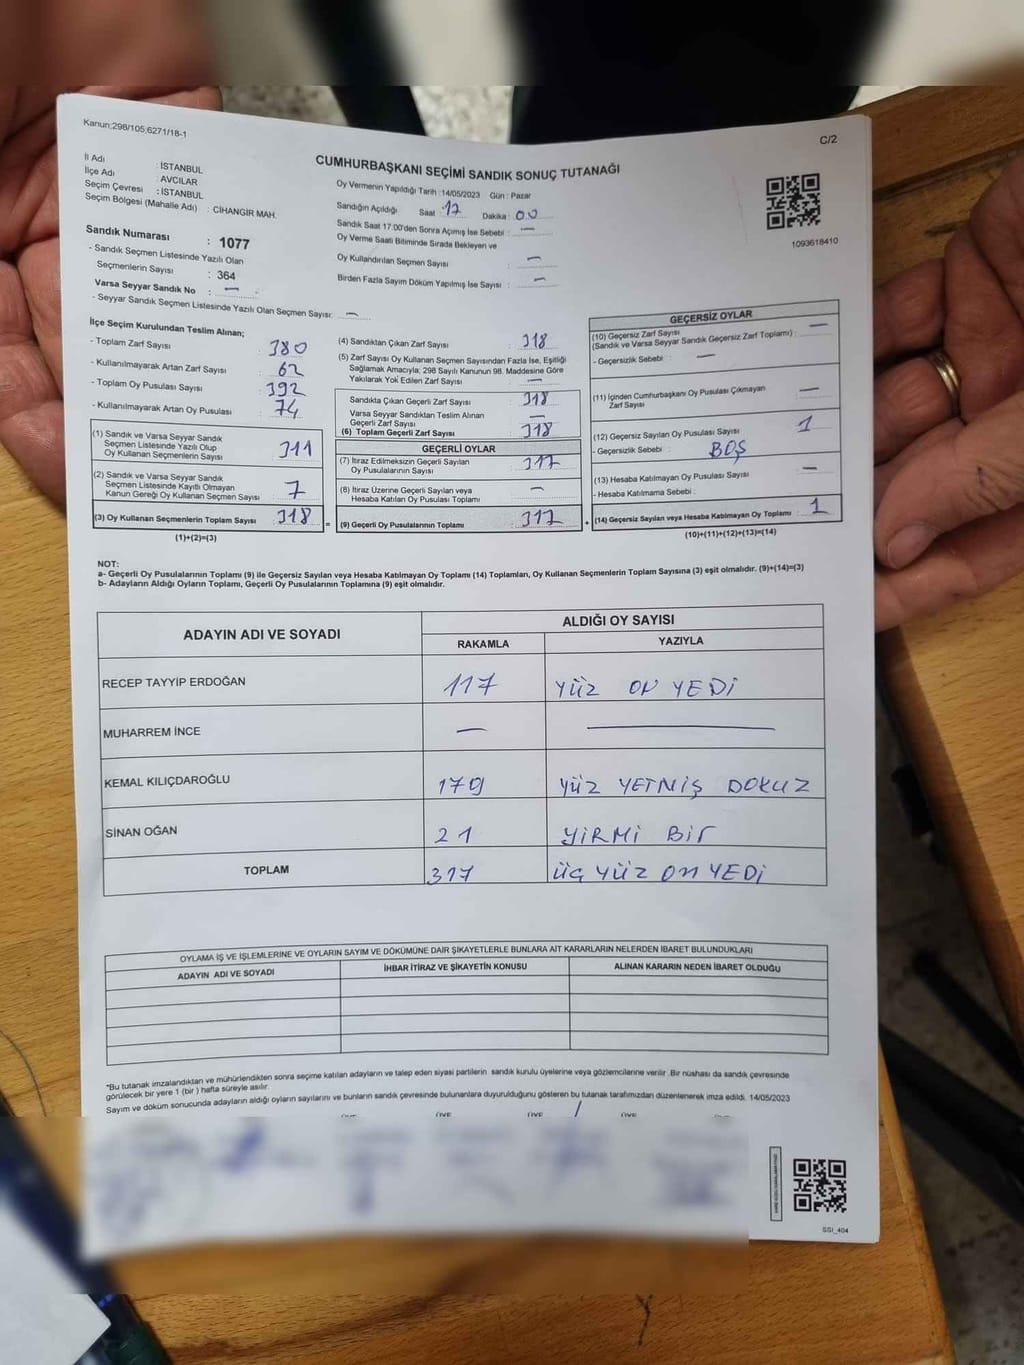 Kanun:298/105;6271/18-1
C/2
CUMHURBAŞKANI SEÇİMİ SANDIK SONUÇ TUTANAĞI
İl Adı : İSTANBUL
İlçe Adı : AVCILAR
Seçim Çevresi : İSTANBUL
Seçim Bölgesi (Mahalle Adı) : CİHANGİR MAH.
Sandık Numarası : 1077
- Sandık Seçmen Listesinde Yazılı Olan
Seçmenlerin Sayısı : 364
Varsa Seyyar Sandık No : —
- Seyyar Sandık Seçmen Listesinde Yazılı Olan Seçmen Sayısı: —
Oy Vermenin Yapıldığı Tarih :14/05/2023 Gün : Pazar
Sandığın Açıldığı Saat : 17 Dakika : 00
Sandık Saat 17:00'den Sonra Açımış İse Sebebi : —
Oy Verme Saati Bitiminde Sırada Bekleyen ve
Oy Kullandırılan Seçmen Sayısı : —
Birden Fazla Sayım Döküm Yapılmış İse Sayısı : —
1093618410
İlçe Seçim Kurulundan Teslim Alınan;
- Toplam Zarf Sayısı : 380
- Kullanılmayarak Artan Zarf Sayısı : 62
- Toplam Oy Pusulası Sayısı : 392
- Kullanılmayarak Artan Oy Pusulası : 74
(1) Sandık ve Varsa Seyyar Sandık
Seçmen Listesinde Yazılı Olup
Oy Kullanan Seçmenlerin Sayısı : 311
(2) Sandık ve Varsa Seyyar Sandık
Seçmen Listesinde Kayıtlı Olmayan
Kanun Gereği Oy Kullanan Seçmen Sayısı : 7
(3) Oy Kullanan Seçmenlerin Toplam Sayısı : 318
(1)+(2)=(3)
(4) Sandıktan Çıkan Zarf Sayısı : 318
(5) Zarf Sayısı Oy Kullanan Seçmen Sayısından Fazla İse, Eşitliği
Sağlamak Amacıyla; 298 Sayılı Kanunun 98. Maddesine Göre
Yakılarak Yok Edilen Zarf Sayısı : —
Sandıkta Çıkan Geçerli Zarf Sayısı : 318
Varsa Seyyar Sandıktan Teslim Alınan
Geçerli Zarf Sayısı : —
(6) Toplam Geçerli Zarf Sayısı : 318
GEÇERLİ OYLAR
(7) İtiraz Edilmeksizin Geçerli Sayılan
Oy Pusulalarının Sayısı : 317
(8) İtiraz Üzerine Geçerli Sayılan veya
Hesaba Katılan Oy Pusulası Toplamı : —
= (9) Geçerli Oy Pusulalarının Toplamı : 317
GEÇERSİZ OYLAR
(10) Geçersiz Zarf Sayısı
(Sandık ve Varsa Seyyar Sandık Geçersiz Zarf Toplamı) : —
- Geçersizlik Sebebi : —
(11) İçinden Cumhurbaşkanı Oy Pusulası Çıkmayan
Zarf Sayısı : —
(12) Geçersiz Sayılan Oy Pusulası Sayısı : 1
- Geçersizlik Sebebi : BOŞ
(13) Hesaba Katılmayan Oy Pusulası Sayısı : —
- Hesaba Katılmama Sebebi :
+ (14) Geçersiz Sayılan veya Hesaba Katılmayan Oy Toplamı : 1
(10)+(11)+(12)+(13)=(14)
NOT:
a- Geçerli Oy Pusulalarının Toplamı (9) ile Geçersiz Sayılan veya Hesaba Katılmayan Oy Toplamı (14) Toplamları, Oy Kullanan Seçmenlerin Toplam Sayısına (3) eşit olmalıdır. (9)+(14)=(3)
b- Adayların Aldığı Oyların Toplamı, Geçerli Oy Pusulalarının Toplamına (9) eşit olmalıdır.
ADAYIN ADI VE SOYADI ALDIĞI OY SAYISI
RAKAMLA YAZIYLA
RECEP TAYYİP ERDOĞAN 117 YÜZ ON YEDİ
MUHARREM İNCE — —
KEMAL KILIÇDAROĞLU 179 YÜZ YETMİŞ DOKUZ
SİNAN OĞAN 21 YİRMİ BİR
TOPLAM 317 ÜÇ YÜZ ON YEDİ
OYLAMA İŞ VE İŞLEMLERİNE VE OYLARIN SAYIM VE DÖKÜMÜNE DAİR ŞİKAYETLERLE BUNLARA AİT KARARLARIN NELERDEN İBARET BULUNDUKLARI
ADAYIN ADI VE SOYADI İHBAR İTİRAZ VE ŞİKAYETİN KONUSU ALINAN KARARIN NEDEN İBARET OLDUĞU
*Bu tutanak imzalandıktan ve mühürlendikten sonra seçime katılan adayların ve talep eden siyasi partilerin sandık kurulu üyelerine veya gözlemcilerine verilir .Bir nüshası da sandık çevresinde
görülecek bir yere 1 (bir ) hafta süreyle asılır.
Sayım ve döküm sonucunda adayların aldığı oyların sayılarını ve bunların sandık çevresinde bulunanlara duyurulduğunu gösteren bu tutanak tarafımızdan düzenlenerek imza edildi. 14/05/2023
ÜYE ÜYE ÜYE ÜYE
SSI_404